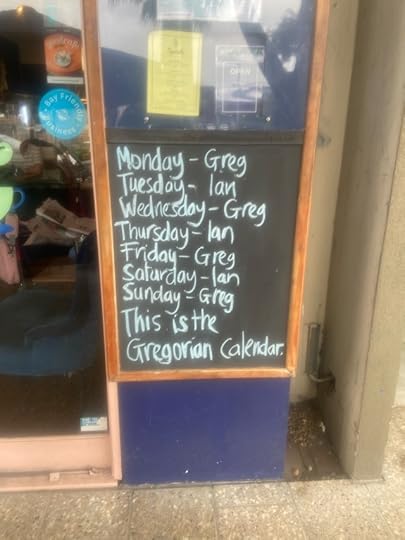 Bay Friendly
Business
OPEN
Monday - Greg
Tuesday - Ian
Wednesday - Greg
Thursday - Ian
Friday - Greg
Saturday - Ian
Sunday - Greg
This is the
Gregorian Calendar.